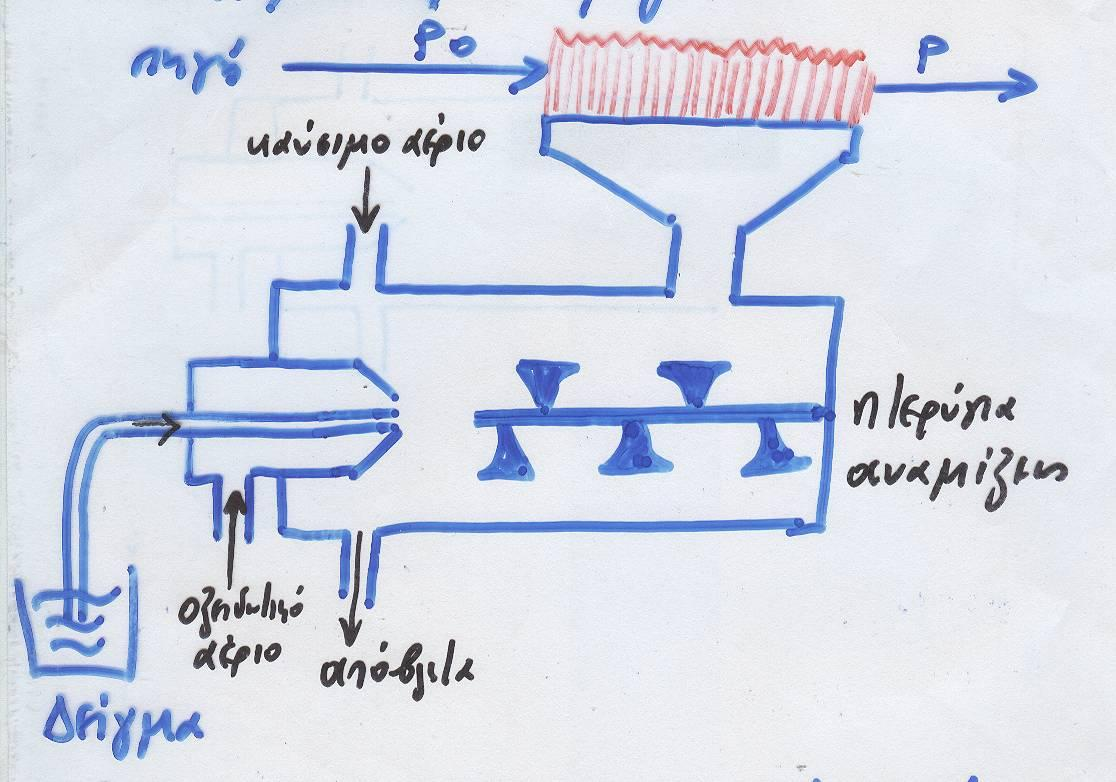 πηγή
Po
P
καύσιμο αέριο
πτερύγια
αναμίξεως
οξειδωτικό
αέριο
απόβλητα
Δείγμα